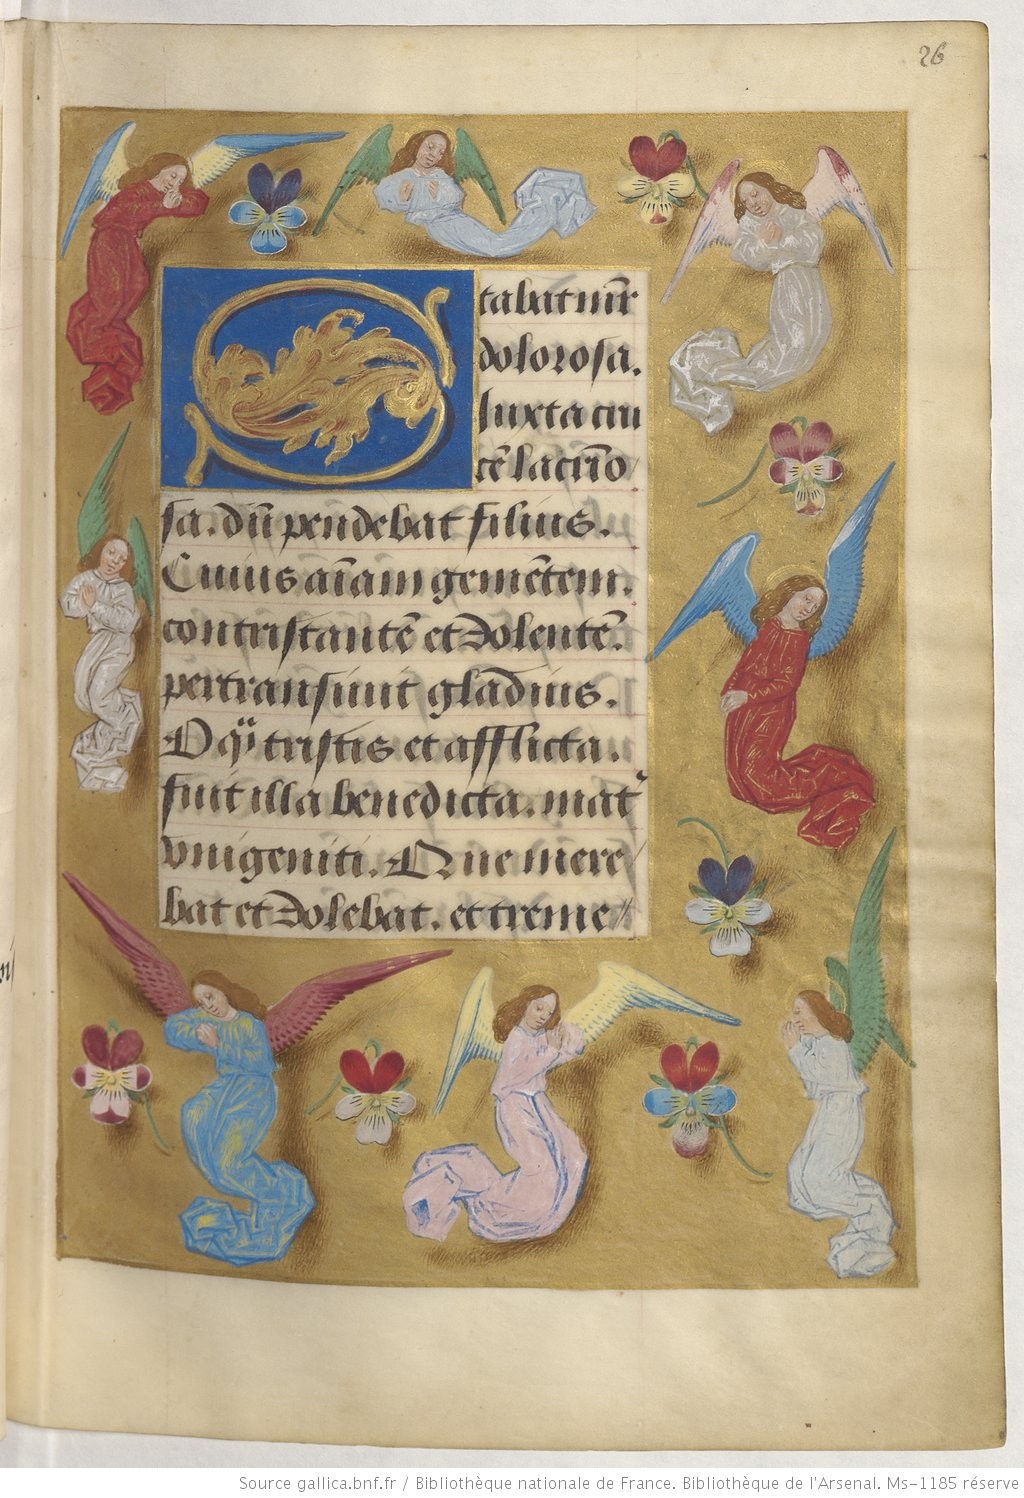 26
Stabat mr̄
dolorosa.
Iuxta cru
cē lacrīo
sa. dū pendebat filius.
Cuius aīam gemētem.
contristantē et dolentē.
pertransiuit gladius.
O q̈ tristis et afflicta.
fuit illa benedicta. mat᷑
vnigeniti. Que mere
bat et dolebat. et treme
Source gallica.bnf.fr / Bibliothèque nationale de France. Bibliothèque de l'Arsenal. Ms-1185 réserve